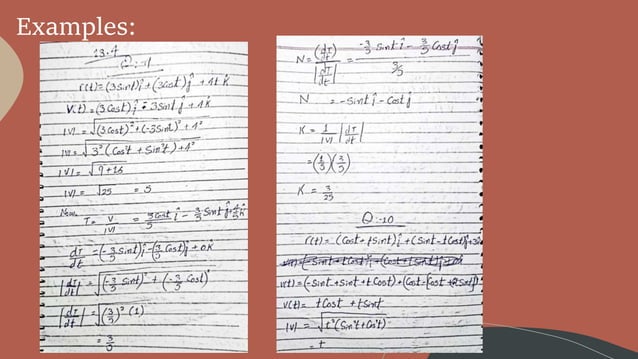 Examples:
13.4
Q:-9
r(t) = (3sint)î + (3cost)ĵ + 4t k̂
V(t) = (3cost)î - 3sint ĵ + 4k̂
|V| = √(3cost)² + (-3sint)² + 4²
|V| = √3²(cos²t + sin²t) + 4²
|V| = √9+16
|V| = √25 = 5
Now,
T = V/|V| = 3cost/5 î - 3/5 sint ĵ + 4/5 k̂
dT/dt = (-3/5 sint)î - (3/5 cost)ĵ + 0k
|dT/dt| = √(-3/5 sint)² + (-3/5 cost)²
|dT/dt| = √(3/5)² (1)
= 3/5
N = (dT/dt)/|dT/dt| = (-3/5 sint î - 3/5 cost ĵ)/(3/5)
N = -sint î - cost ĵ
K = 1/|V| |dT/dt|
= (1/5)(3/5)
K = 3/25
Q:-10
r(t) = (cost + tsint)î + (sint - tcost)ĵ + 3k
v(t) = (-sint + sint + tcost) + (cost - cost + tsint)
v(t) = tcost + tsint
|V| = √t²(sin²t + cos²t)
= t